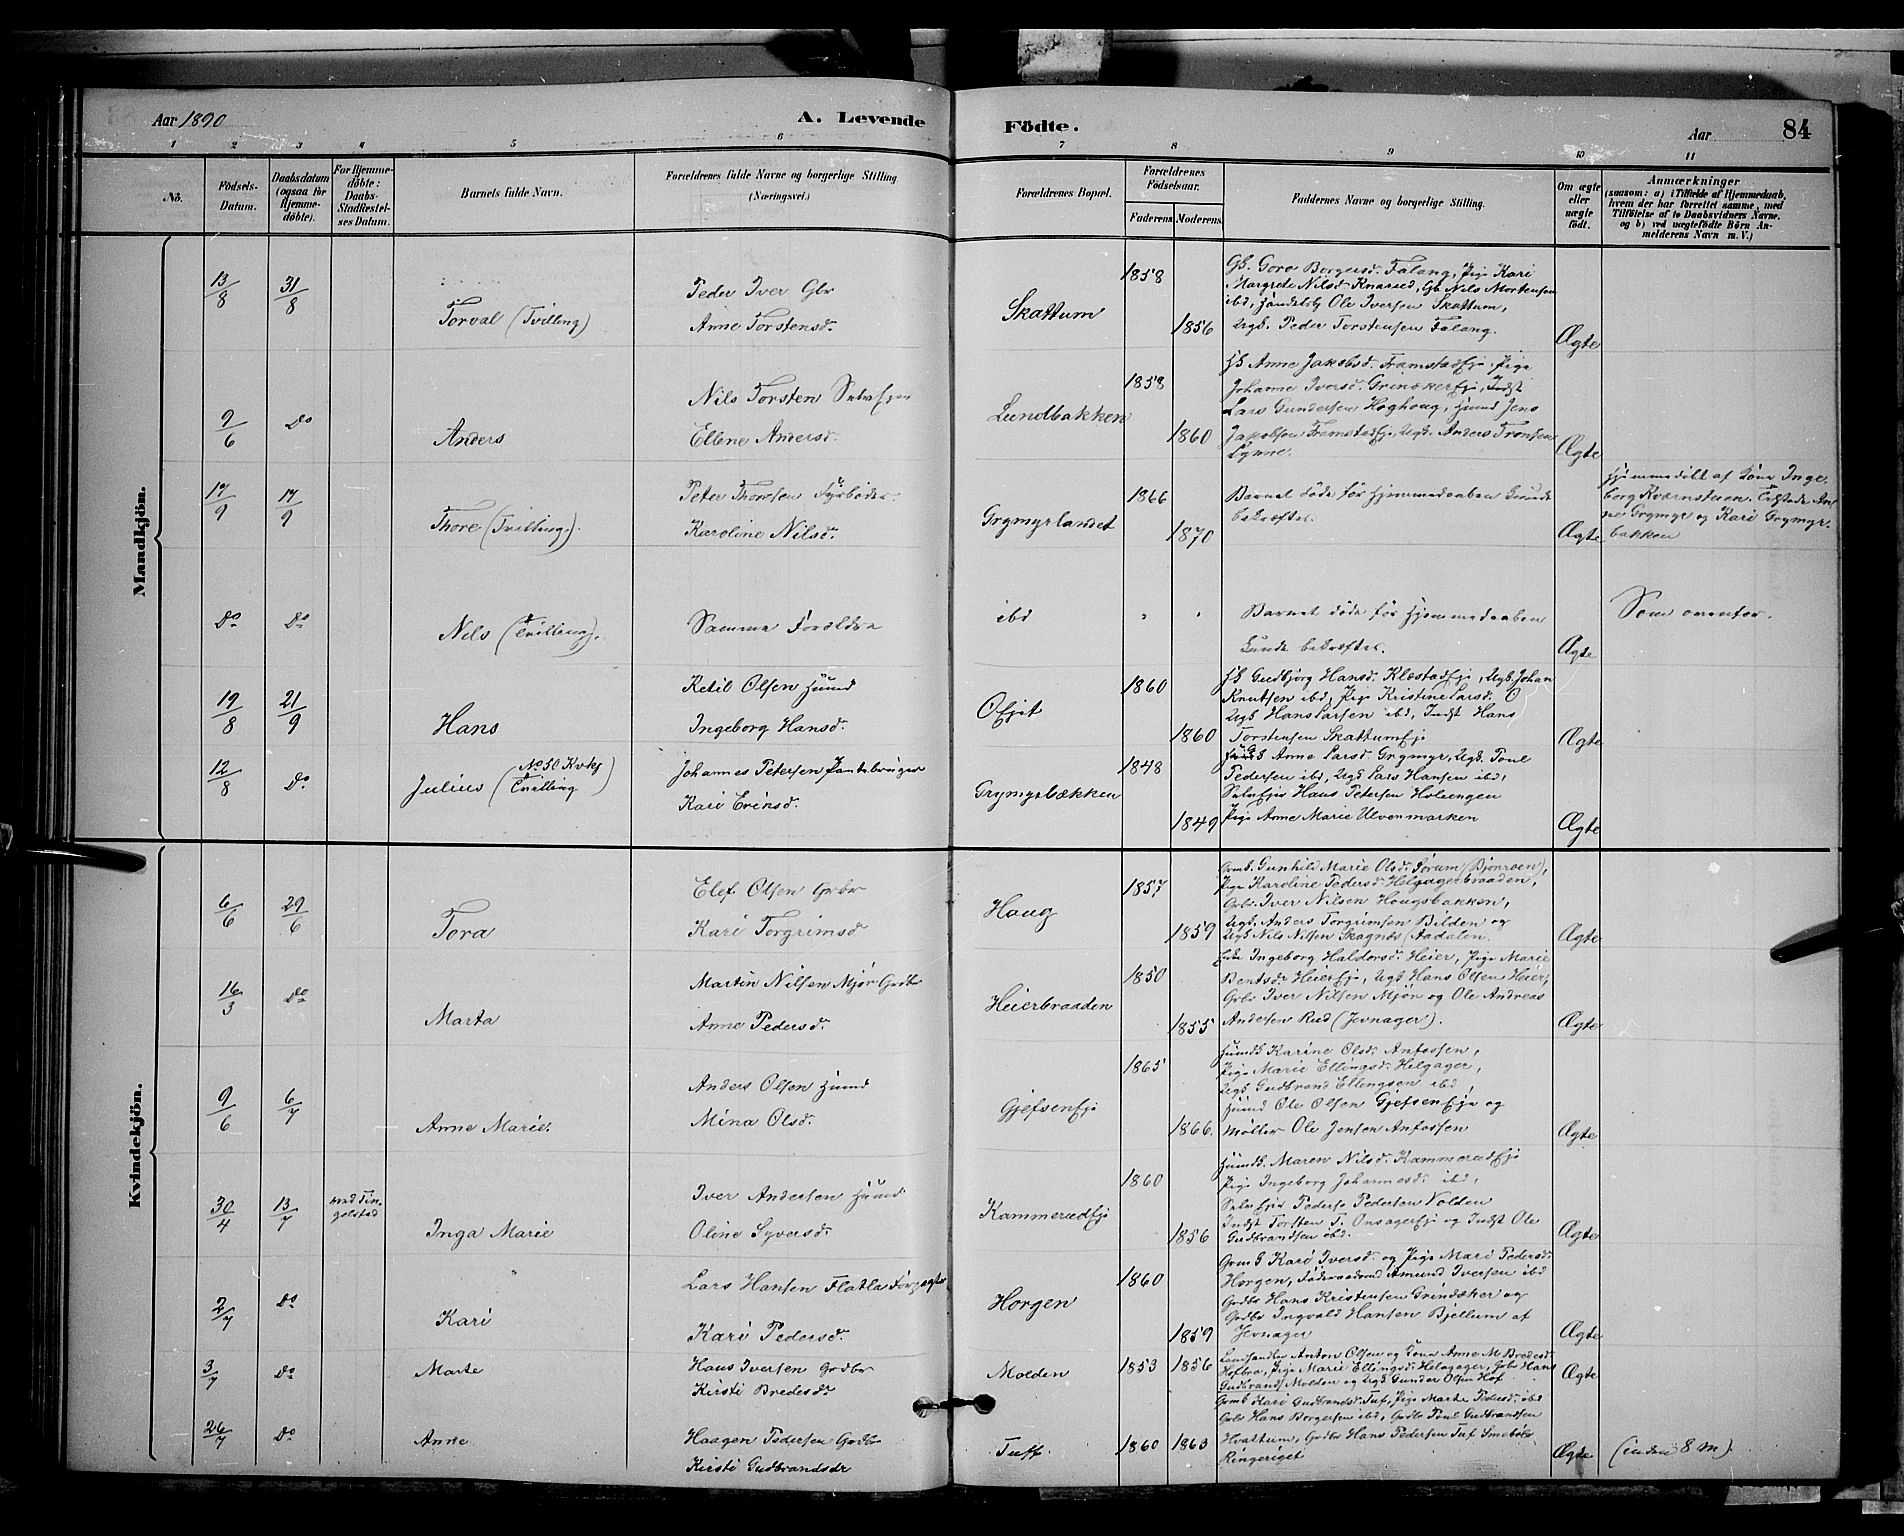 Aar 1890
A. Levende
Födte.
Aar
84
1 2 3 4 5 6 7 8 9 10 11
No.
Födsels-Datum.
Daabsdatum (ogsaa for Hjemme-döbte).
For Hjemme-döbte: Daabs-Stadfæstel-ses Datum.
Barnets fulde Navn.
Forældrenes fulde Navne og borgerlige Stilling (Næringsvei.)
Forældrenes Bopæl.
Forældrenes Födselsaar.
Faderens. Moderens.
Faddernes Navne og borgerlige Stilling.
Om ægte eller uægte födt.
Anmærkninger
(saasom: a) i Tilfælde af Hjemmedaab,
hvem der har forrettet samme, med
Tilföielse af to Daabsvidners Navne.
og b) ved uægtefödte Börn An-
melderens Navn m. V.)
Mandkjön.
13/8 31/8 Torval (Tvilling)
Peder Iver Gbr
Anne Torstensd.
Skattum
1858
1856
Gk. Goro Borgersd. Falang, Pige Kari
Margrete Nilsd. Knarud, Gb. Nils Mortensen
ibd, Handelsb. Ole Iversen Skattum,
Ugk. Peder Torstensen Falang.
Ægte
9/6 Do Anders
Nils Torsten Selveier
Ellene Andersd.
Lundbakken
1858
1860
Anne Jakobsd. Framstadeje, Pige
Johanne Iversd. Grinakereje, Indst
Lars Gundersen Hoghoug, Huusmd Jens
Jakobsen Framstadeje, Ugk. Anders Tronsen
Lynne.
Ægte
17/9 17/9 Thore (Tvilling.)
Peter Thoresen Fyrbøder
Karoline Nilsd.
Grymyrlandet
1866
1870
Barnet døde før Hjemmedaaben kunde
bekræftes.
Ægte
Hjemmedøbt af Kone Inge-
borg Kværnsteen. Tilstede An-
ne Grymyr og Kari Grymyr-
bakken
Do Do Nils (Tvilling).
Samme Forældre
ibd
Barnet døde før Hjemmedaaben
kunde bekræftes.
Ægte
Som ovenfor.
19/8 21/9 Hans
Ketil Olsen Huusmd
Ingeborg Hansd.
Ofjit
1860
1860
Gudbjørg Hansd. Klæstadeje, Ugk. Johan
Knutsen ibd, Pige Kristine Larsd. O
Ugk. Hans Larsen ibd, Indst Hans
Torstensen Skattumeje
Ægte
12/8 Do Julius (No 50 Kvkj Tvilling)
Johannes Petersen Pantebruger
Kari Erensd.
Grymyrbækken
1848
1849
Anne Larsd. Grymyr, Ugk. Poul
Pedersen ibd, Ugk. Lars Hansen ibd,
Selveier Hans Petersen Holeengen
Pige Anne Marie Ulvenmarken
Ægte
Kvindekjön.
6/6 29/6 Tora
Elef Olsen Grbr
Kari Torgrimsd
Haug
1857
1859
Grmk. Gunhild Marie Olsd. Sørum (Bjønroen),
Pige Karoline Pedersd. Helgagerbraaden,
Grbr. Iver Nilsen Hougsbakken,
Ugk. Anders Torgrimsen Bilden og
Ugk. Nils Nilsen Skagnæs (Aadalen.
Ægte
16/3 Do Marta
Martin Nilsen Mjør Grdbr
Anne Pedersd.
Heierbraaden
1850
1855
Ingeborg Haldorsd. Heier, Pige Marie
Bentsd. Heiereje, Ugk. Hans Olsen Heier,
Grbr Iver Nilsen Mjøn og Ole Andreas
Andersen Rud (Jevnager).
Ægte
9/6 6/7 Anne Marie.
Anders Olsen Huusmd
Mina Olsd.
Gjefseneje
1865
1866.
Huusmdk. Karine Olsd. Anfossen,
Pige Marie Ellingsd. Helgager,
Ugk. Gudbrand Ellingsen ibd,
Huusmd Ole Olsen Gjefseneje og
Møller Ole Jensen Anfossen
Ægte
30/4 13/7 ved Tin-
gelstad
Inga Marie
Iver Andersen Huusmd
Oline Syversd.
Kammerudeje
1860
1856
Huusmdk. Maren Nilsd. Kammerudeje
Pige Ingeborg Johannesd. ibd,
Selveier Peders. Pedersen Volden
Indst Torsten T. Onsagereje og Indst Ole
Gudbrandsen ibd.
Ægte
2/7 Do Kari
Lars Hansen Flatla Forpagter
Kari Pedersd.
Horgen
1860
1859
Grmk. Kari Iversd. og Pige Mari Pedersd.
Horgen, Føderaadsmd Amund Iversen ibd
Grdbr Hans Kristensen Grindaker og
Grdbr Ingvald Hansen Bjellum af
Jevnager
Ægte
3/7 Do Marte
Hans Iversen Grdbr
Kirsti Bredesd
Molden
1853 1856
Landhandler Anton Olsen og Kone Anne M. Bredesd.
Hofbro, Pige Marie Ellingsd. Helgager, Grbr Hans
Gudbrands. Molden og Ugk. Gunder Olsen Hof
Ægte
26/7 Do Anne
Haagen Pedersen Grdbr
Kirsti Gudbrandsdr
Tuff.
1860 1863
Grmk. Kari Gudbrandsd. Tuf, Pige Marte Pedersd. ibd
Grbr Hans Borgersen ibd, Grdbr Poul Gudbrandsen
Hvattum, Grdbr Hans Pedersen Tuf
Ringeriget
Ægte
(inden 8 M)